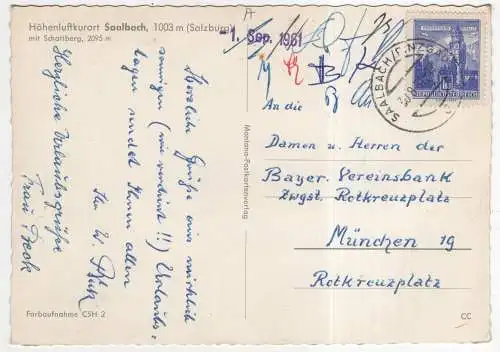 Höhenluftkurort Saalbach, 1003 m (Salzburg)
mit Schattberg, 2095 m
-1. Sep. 1961
SAALBACH / PINZGAU
REPUBLIK ÖSTERREICH
Herzliche Grüße aus wirklich
sonnigen (wie verdient!!) Urlaubs-
tagen sendet Ihnen allen
Ihr W.
Herzliche Urlaubsgrüße
Frau
An die
Damen u. Herren der
Bayer. Vereinsbank
Zwgst. Rotkreuzplatz
München 19
Rotkreuzplatz
Montana-Postkartenverlag
Farbaufnahme CSH 2
CC